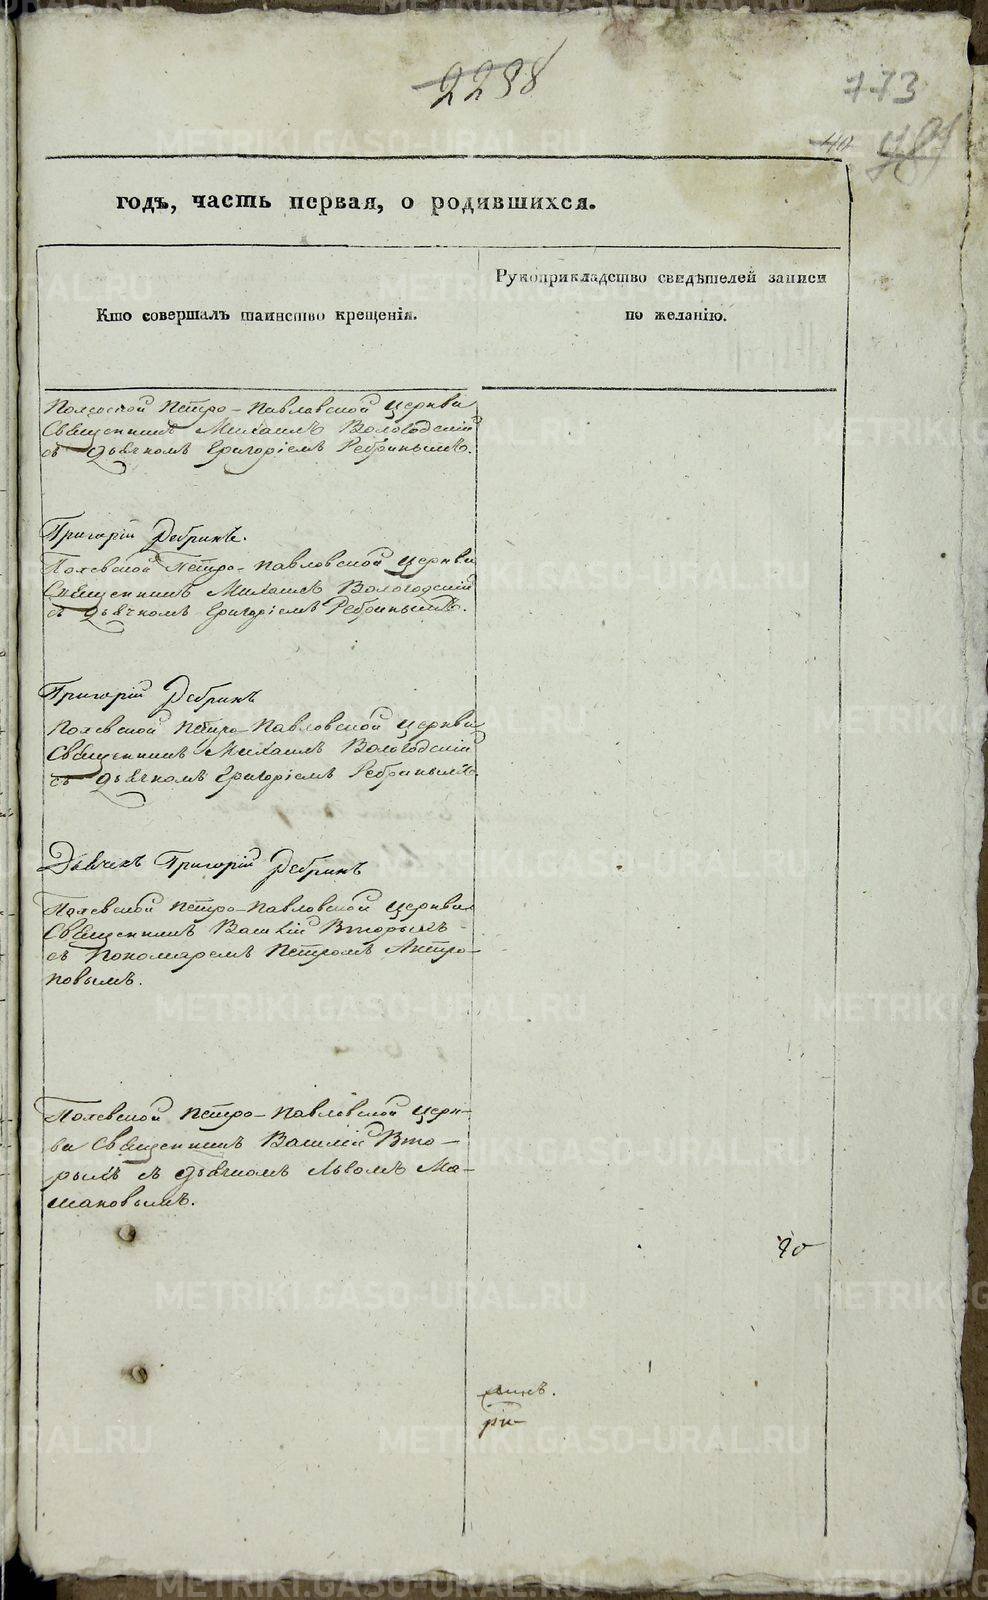 2298
773
40
годъ, часть первая, о родившихся.
Кто совершалъ таинство крещенія.
Рукоприкладство свидѣтелей записи
по желанію.
Полевской Петро-Павловской Церкви
Священникъ Михаилъ Вологодскій
съ дьячкомъ Григоріемъ Ребринымъ.
Григорій Ребринъ.
Полевской Петро-Павловской Церкви
Священникъ Михаилъ Вологодскій
съ дьячкомъ Григоріемъ Ребринымъ.
Григорій Ребринъ
Полевской Петро-Павловской Церкви
Священникъ Михаилъ Вологодскій
съ дьячкомъ Григоріемъ Ребринымъ
Дьячекъ Григорій Ребринъ
Полевской Петро-Павловской Церкви
Священникъ Василій Вторыхъ
съ Пономаремъ Петромъ Антро-
повымъ.
Полевской Петро-Павловской Церк-
ви Священникъ Василій Вто-
рыхъ съ дьячкомъ Львомъ Ма-
шановымъ.
METRIKI.GASO-URAL.RU